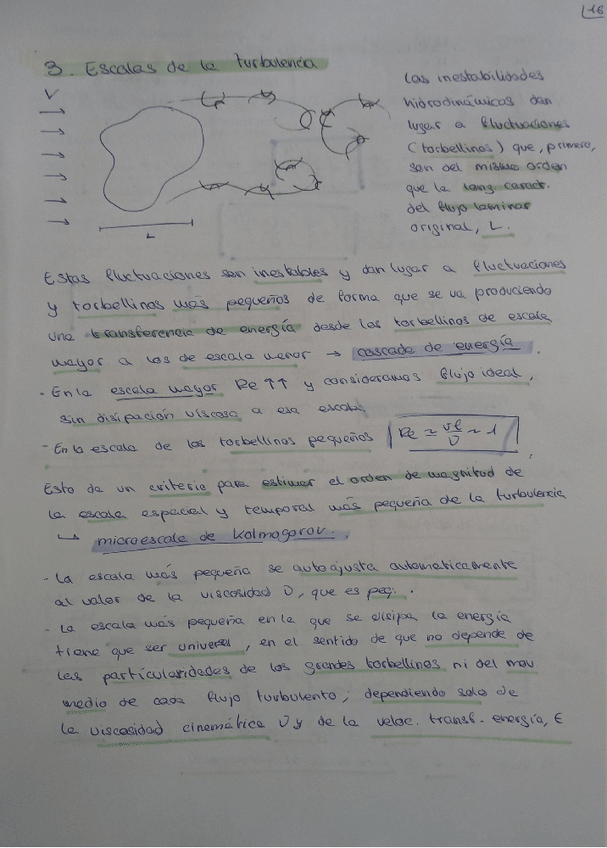 16
3. Escalas de la turbulencia
V
L
Las inestabilidades
hidrodinámicas dan
lugar a fluctuaciones
(torbellinos) que, primero,
son del mismo orden
que la long. caract.
del flujo laminar
original, L.
Estas fluctuaciones son inestables y dan lugar a fluctuaciones
y torbellinos más pequeños de forma que se va produciendo
una transferencia de energía desde los torbellinos de escala
mayor a los de escala menor → cascada de energía.
· En la escala mayor Re ↑↑ y consideramos flujo ideal,
sin disipación viscosa a esa escala
- En la escala de los torbellinos pequeños Re ≃ vl/ν ~ 1,
Esto da un criterio para estimar el orden de magnitud de
la escala espacial y temporal más pequeña de la turbulencia
↳ microescala de Kolmogorov.
- La escala más pequeña se autoajusta automáticamente
al valor de la viscosidad ν, que es peq.
- La escala más pequeña en la que se disipa la energía
tiene que ser universal, en el sentido de que no depende de
las particularidades de los grandes torbellinos ni del mov
medio de cada flujo turbulento; dependiendo solo de
la viscosidad cinemática ν y de la veloc. transf. energía, ϵ